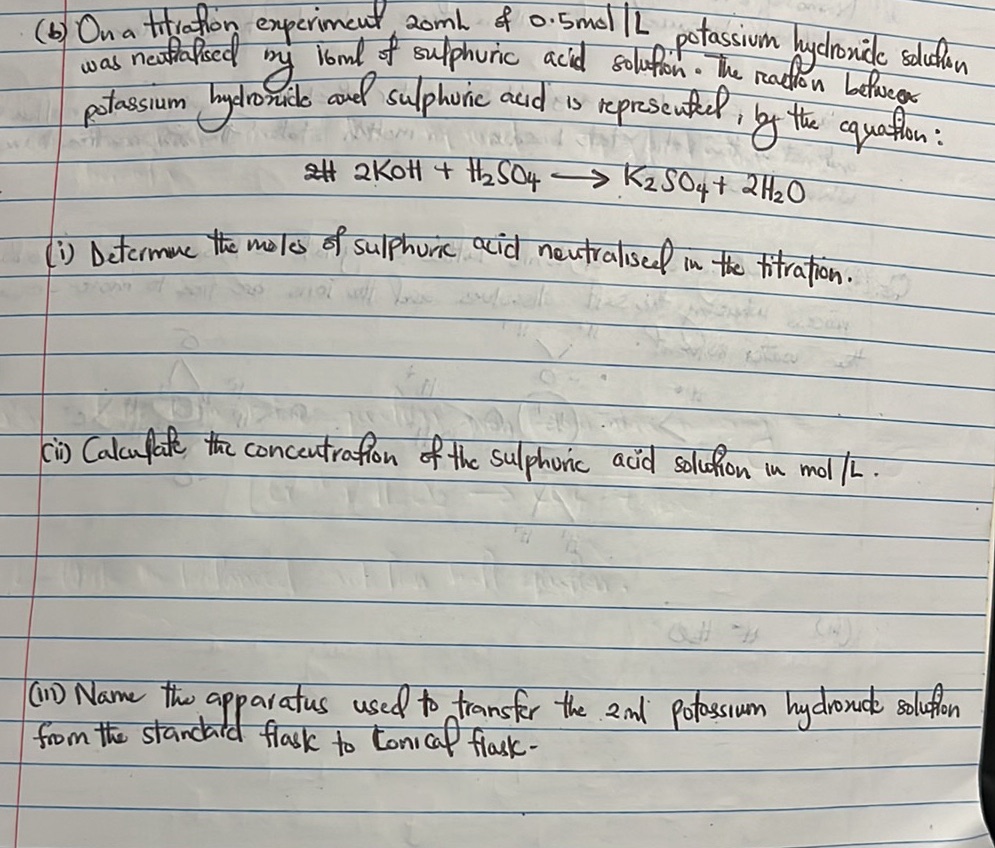 (b) On a titration experiment 20ml of 0.5mol/L potassium hydroxide solution
was neutralised by 16ml of sulphuric acid solution. The reaction between
potassium hydroxide and sulphuric acid is represented, by the equation:
2KOH + H₂SO₄ → K₂SO₄ + 2H₂O
(i) Determine the moles of sulphuric acid neutralised in the titration.
(ii) Calculate the concentration of the sulphuric acid solution in mol/L.
(iii) Name the apparatus used to transfer the 2ml potassium hydroxide solution
from the standard flask to conical flask-